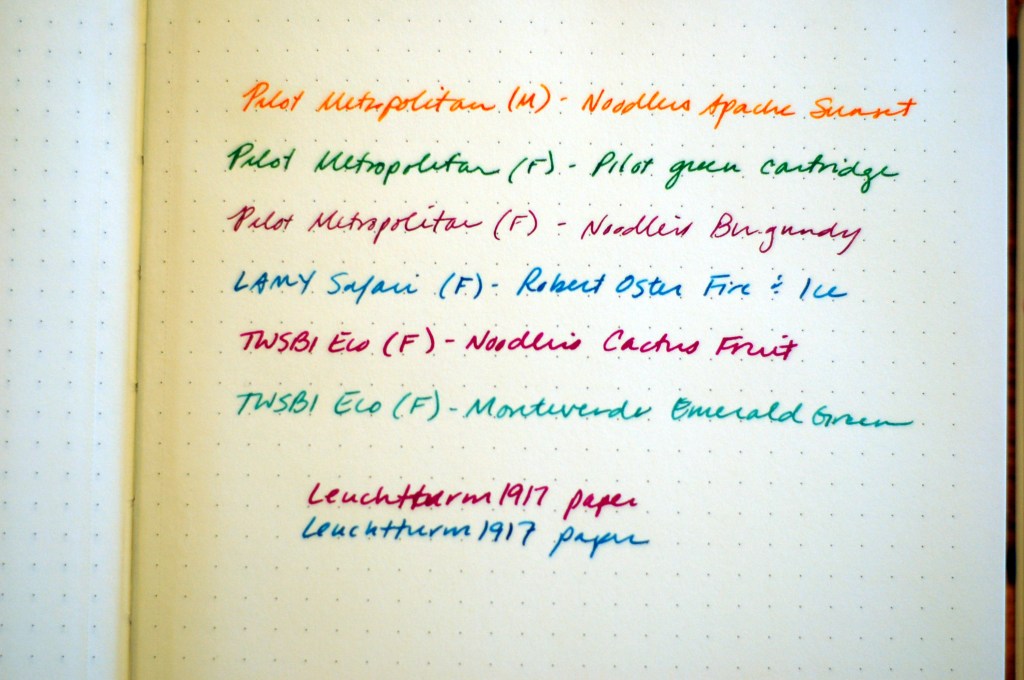 Pilot Metropolitan (M) - Noodlers Apache Sunset
Pilot Metropolitan (F) - Pilot green cartridge
Pilot Metropolitan (F) - Noodlers Burgundy
LAMY Safari (F) - Robert Oster Fire & Ice
TWSBI Eco (F) - Noodlers Cactus Fruit
TWSBI Eco (F) - Monteverde Emerald Green
Leuchtturm1917 paper
Leuchtturm1917 paper